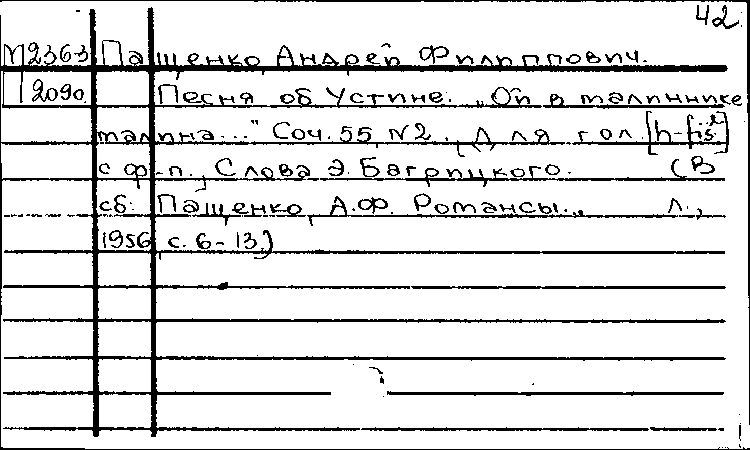 42
М2363 Пащенко, Андрей Филиппович.
П 2090 Песня об Устине. „Ой в малиннике
малина..." Соч. 55, N2., Для гол. [h-fis²]
с ф-п., Слова Э. Багрицкого. (В
сб: Пащенко, А.Ф. Романсы., Л.,
1956, с. 6-13)